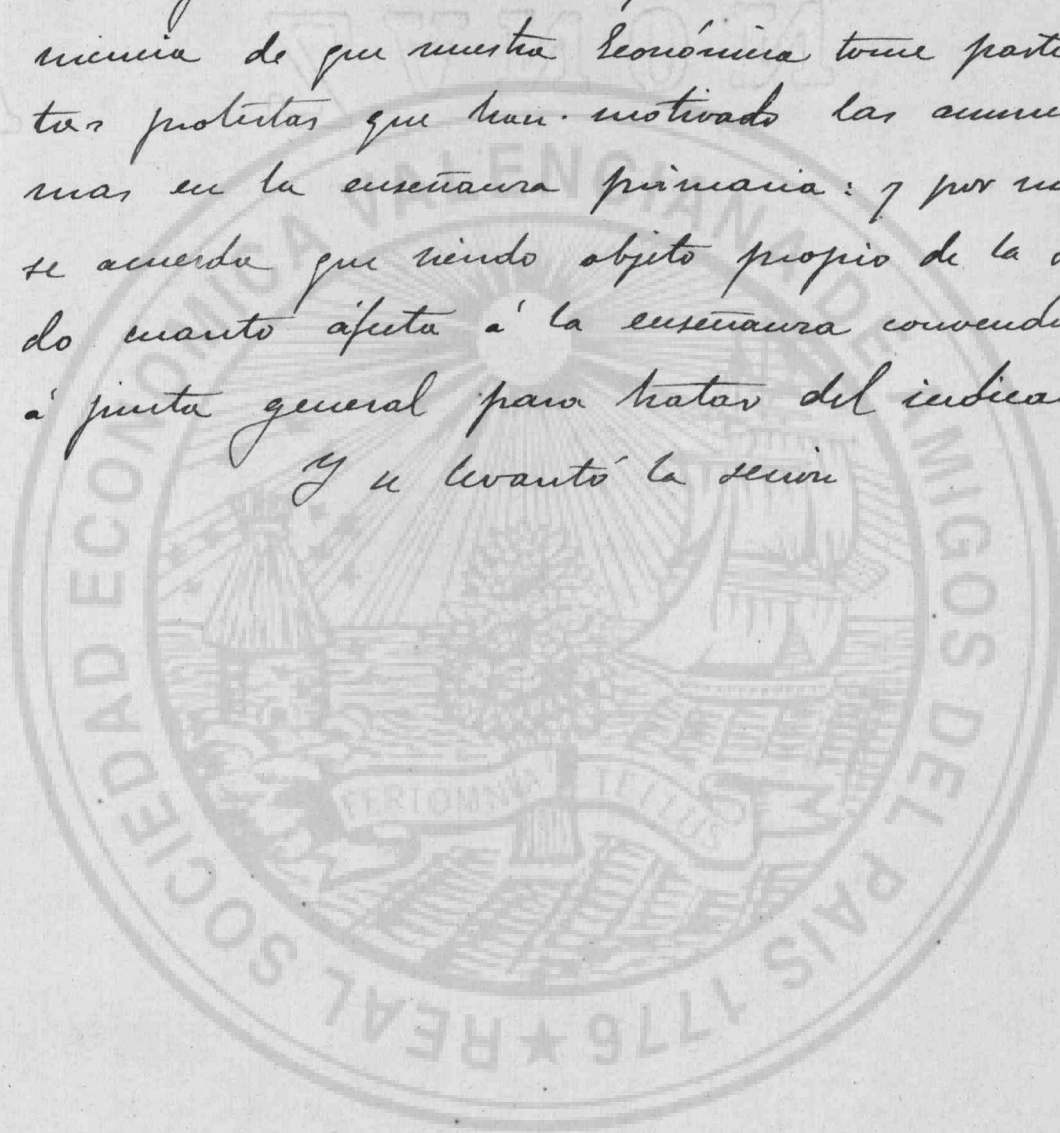 niencia de que nuestra Económica tome parte
tas protestas que han motivado las anun
mas en la enseñanza primaria: y por
se acuerda que siendo objeto propio de la
do cuanto áfecta á la enseñanza
á junta general para tratar del indica
Y se levantó la sesión
REAL SOCIEDAD ECONOMICA VALENCIANA DE AMIGOS DEL PAIS 1776 ★
FERT OMNIA TELLUS